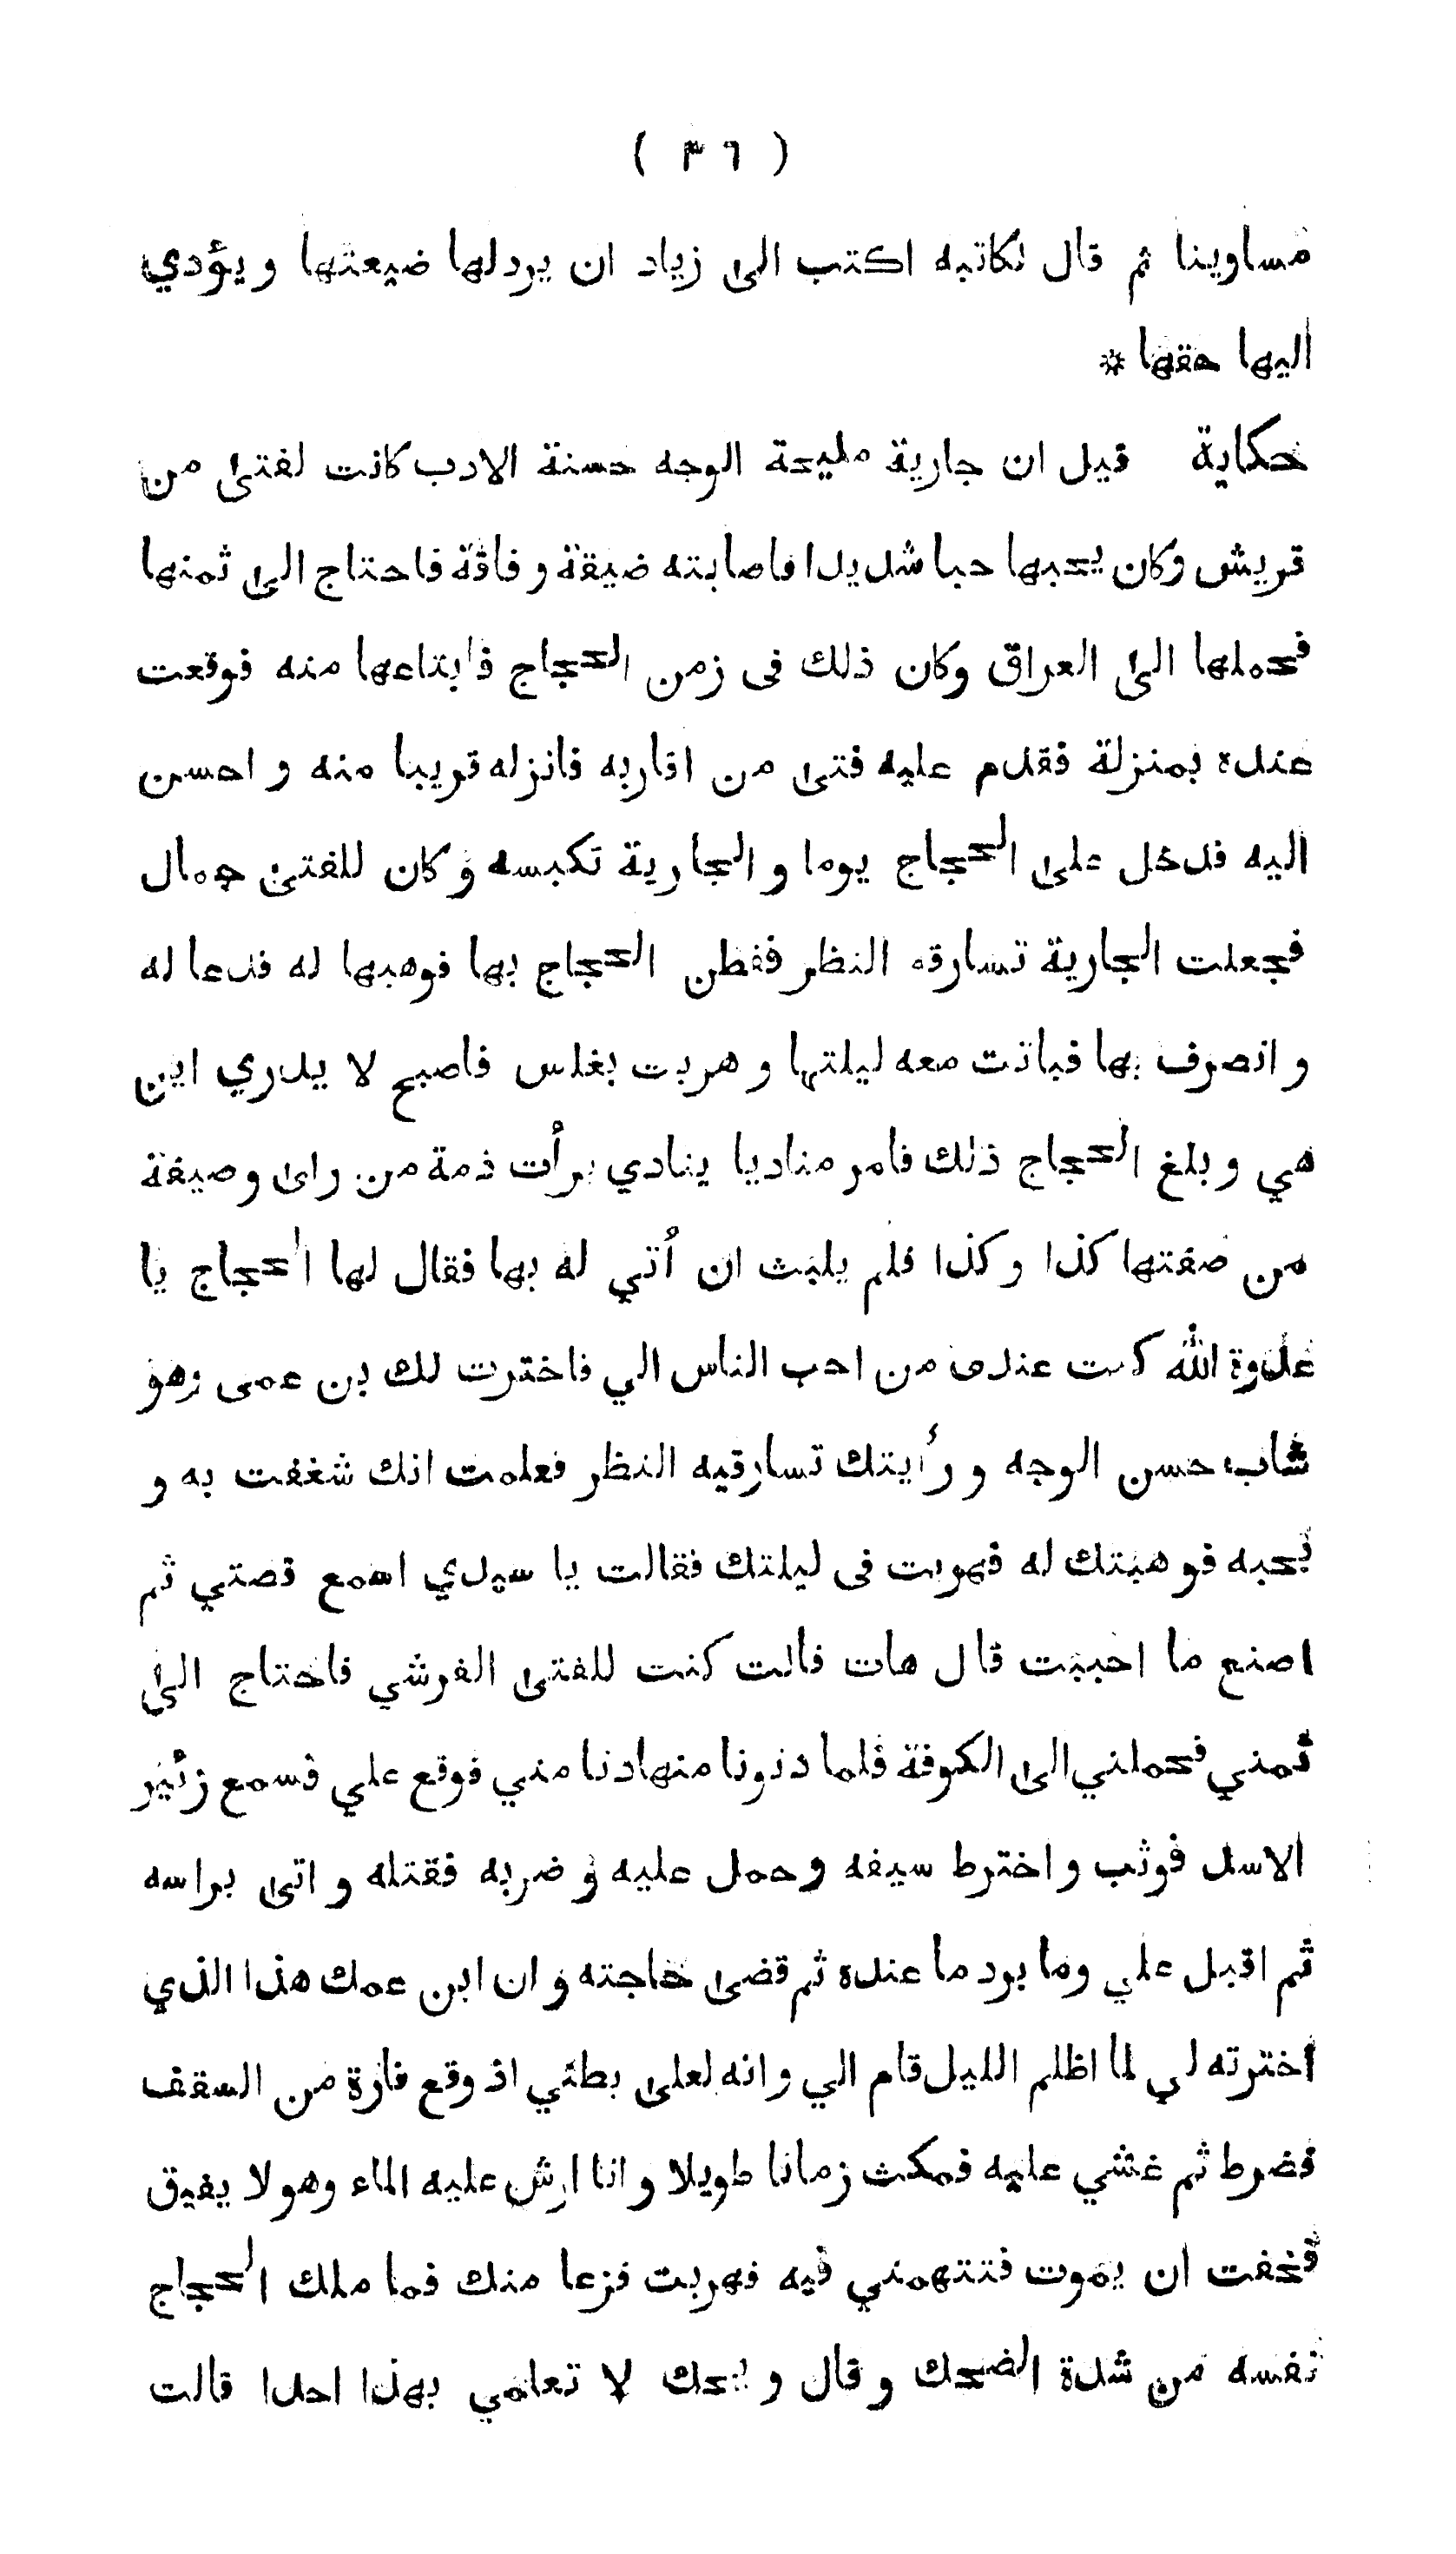 ( ٣٦ )
مساوينا ثم قال لكاتبه اكتب الى زياد ان يرد لها ضيعتها و يؤدي
اليها حقها *
حكاية قيل ان جارية مليحة الوجه حسنة الادب كانت لفتى من
قريش وكان يحبها حبا شديدا فاصابته ضيقة و فاقة فاحتاج الى ثمنها
فحملها الى العراق وكان ذلك فى زمن الحجاج فابتاعها منه فوقعت
عنده بمنزلة فقدم عليه فتى من اقاربه فانزله قريبا منه و احسن
اليه فدخل على الحجاج يوما و الجارية تكبسه و كان للفتى جمال
فجعلت الجارية تسارقه النظر ففطن الحجاج بها فوهبها له فدعا له
و انصرف بها فباتت معه ليلتها و هربت بغلس فاصبح لا يدري اين
هي و بلغ الحجاج ذلك فامر مناديا ينادي برأت ذمة من راى وصيفة
من صفتها كذا و كذا فلم يلبث ان أتي له بها فقال لها الحجاج يا
عدوة الله كنت عندى من احب الناس الي فاخترت لك بن عمى وهو
شاب حسن الوجه و رأيتك تسارقيه النظر فعلمت انك شغفت به و
بحبه فوهبتك له فهربت فى ليلتك فقالت يا سيدي اسمع قصتي ثم
اصنع ما احببت قال هات قالت كنت للفتى القرشي فاحتاج الى
ثمني فحملني الى الكوفة فلما دنونا منها دنا مني فوقع علي فسمع زئير
الاسد فوثب و اخترط سيفه و حمل عليه و ضربه فقتله و اتى براسه
ثم اقبل علي وما برد ما عنده ثم قضى حاجته و ان ابن عمك هذا الذي
اخترته لي لما اظلم الليل قام الي و انه لعلى بطني اذ وقع فارة من السقف
فضرط ثم غشي عليه فمكث زمانا طويلا و انا ارش عليه الماء وهو لا يفيق
فخفت ان يموت فتتهمني فيه فهربت فزعا منك فما ملك الحجاج
نفسه من شدة الضحك و قال و يحك لا تعلمي بهذا احدا قالت